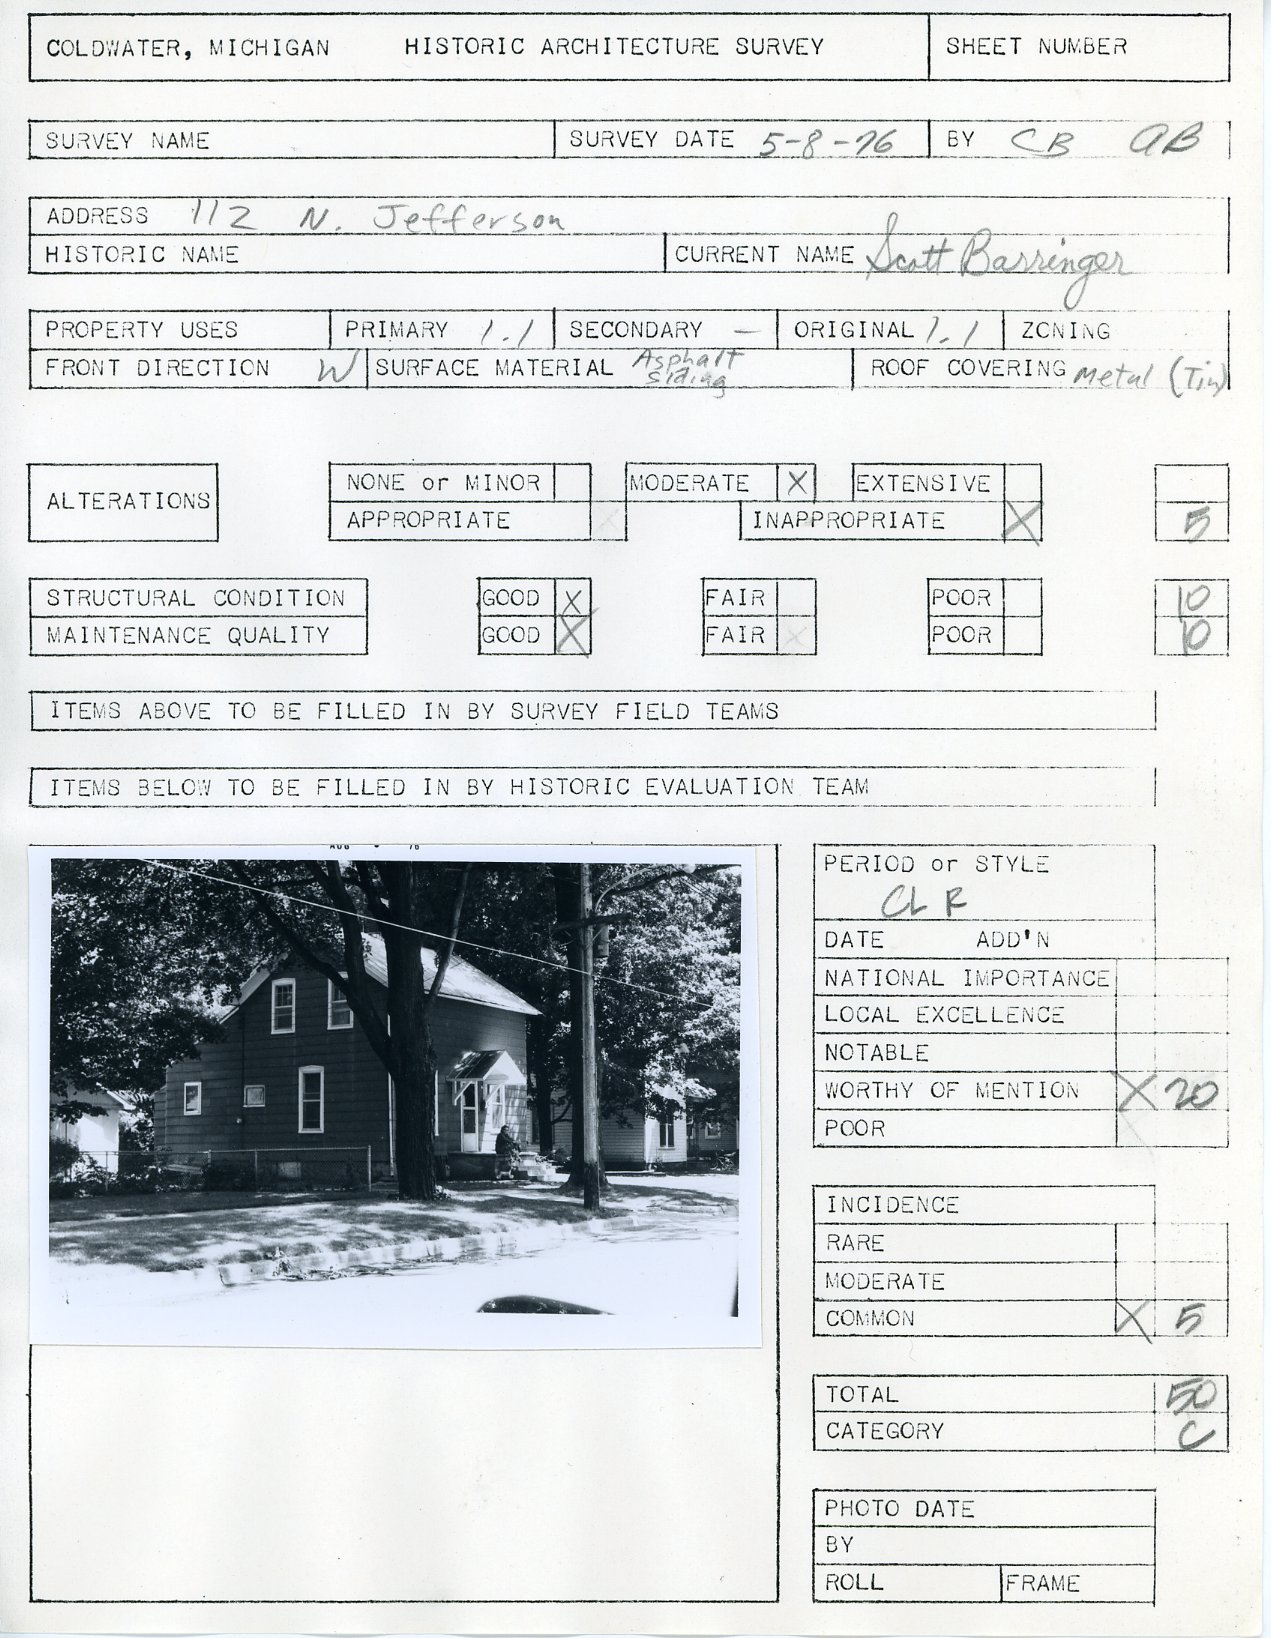 COLDWATER, MICHIGAN HISTORIC ARCHITECTURE SURVEY SHEET NUMBER
SURVEY NAME SURVEY DATE 5-8-76 BY CB AB
ADDRESS 112 N. Jefferson
HISTORIC NAME CURRENT NAME Scott Barringer
PROPERTY USES PRIMARY 1.1 SECONDARY — ORIGINAL 1.1 ZONING
FRONT DIRECTION W SURFACE MATERIAL Asphalt Siding ROOF COVERING Metal (Tin)
ALTERATIONS NONE or MINOR MODERATE X EXTENSIVE
APPROPRIATE X INAPPROPRIATE X 5
STRUCTURAL CONDITION GOOD X FAIR POOR 10
MAINTENANCE QUALITY GOOD X FAIR X POOR 10
ITEMS ABOVE TO BE FILLED IN BY SURVEY FIELD TEAMS
ITEMS BELOW TO BE FILLED IN BY HISTORIC EVALUATION TEAM
AUG 76
PERIOD or STYLE
CL R
DATE ADD'N
NATIONAL IMPORTANCE
LOCAL EXCELLENCE
NOTABLE
WORTHY OF MENTION X 20
POOR
INCIDENCE
RARE
MODERATE
COMMON X 5
TOTAL 50
CATEGORY C
PHOTO DATE
BY
ROLL FRAME